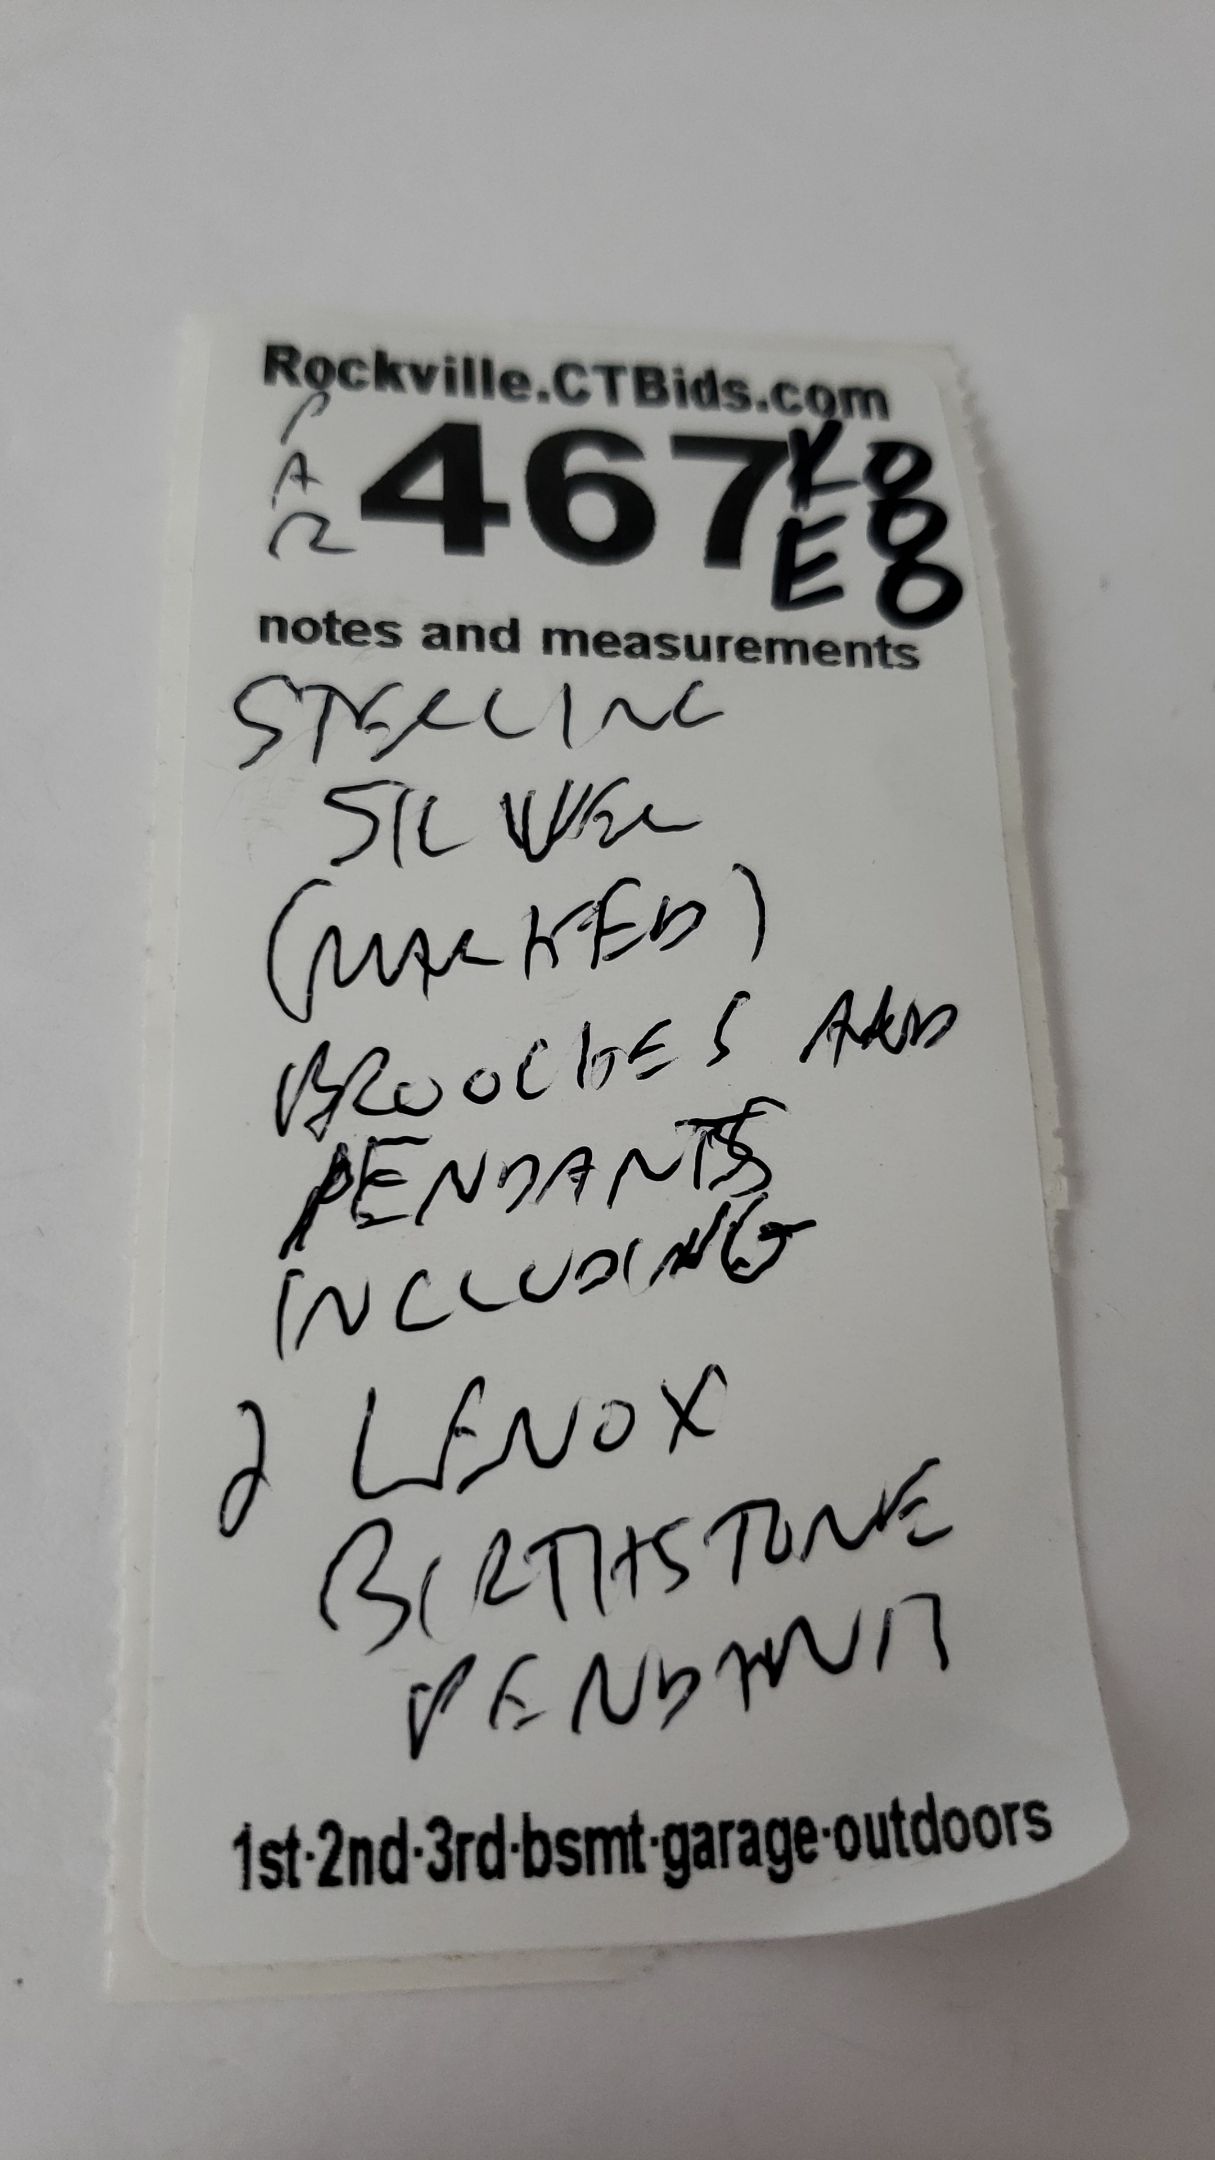 Rockville.CTBids.com
PAR
467
KO
EO
O
notes and measurements
STERLING
SILVER
(MARKED)
BROOCHES AND
PENDANTS
INCLUDING
2 LENOX
BIRTHSTONE
PENDANT
1st·2nd·3rd·bsmt·garage·outdoors